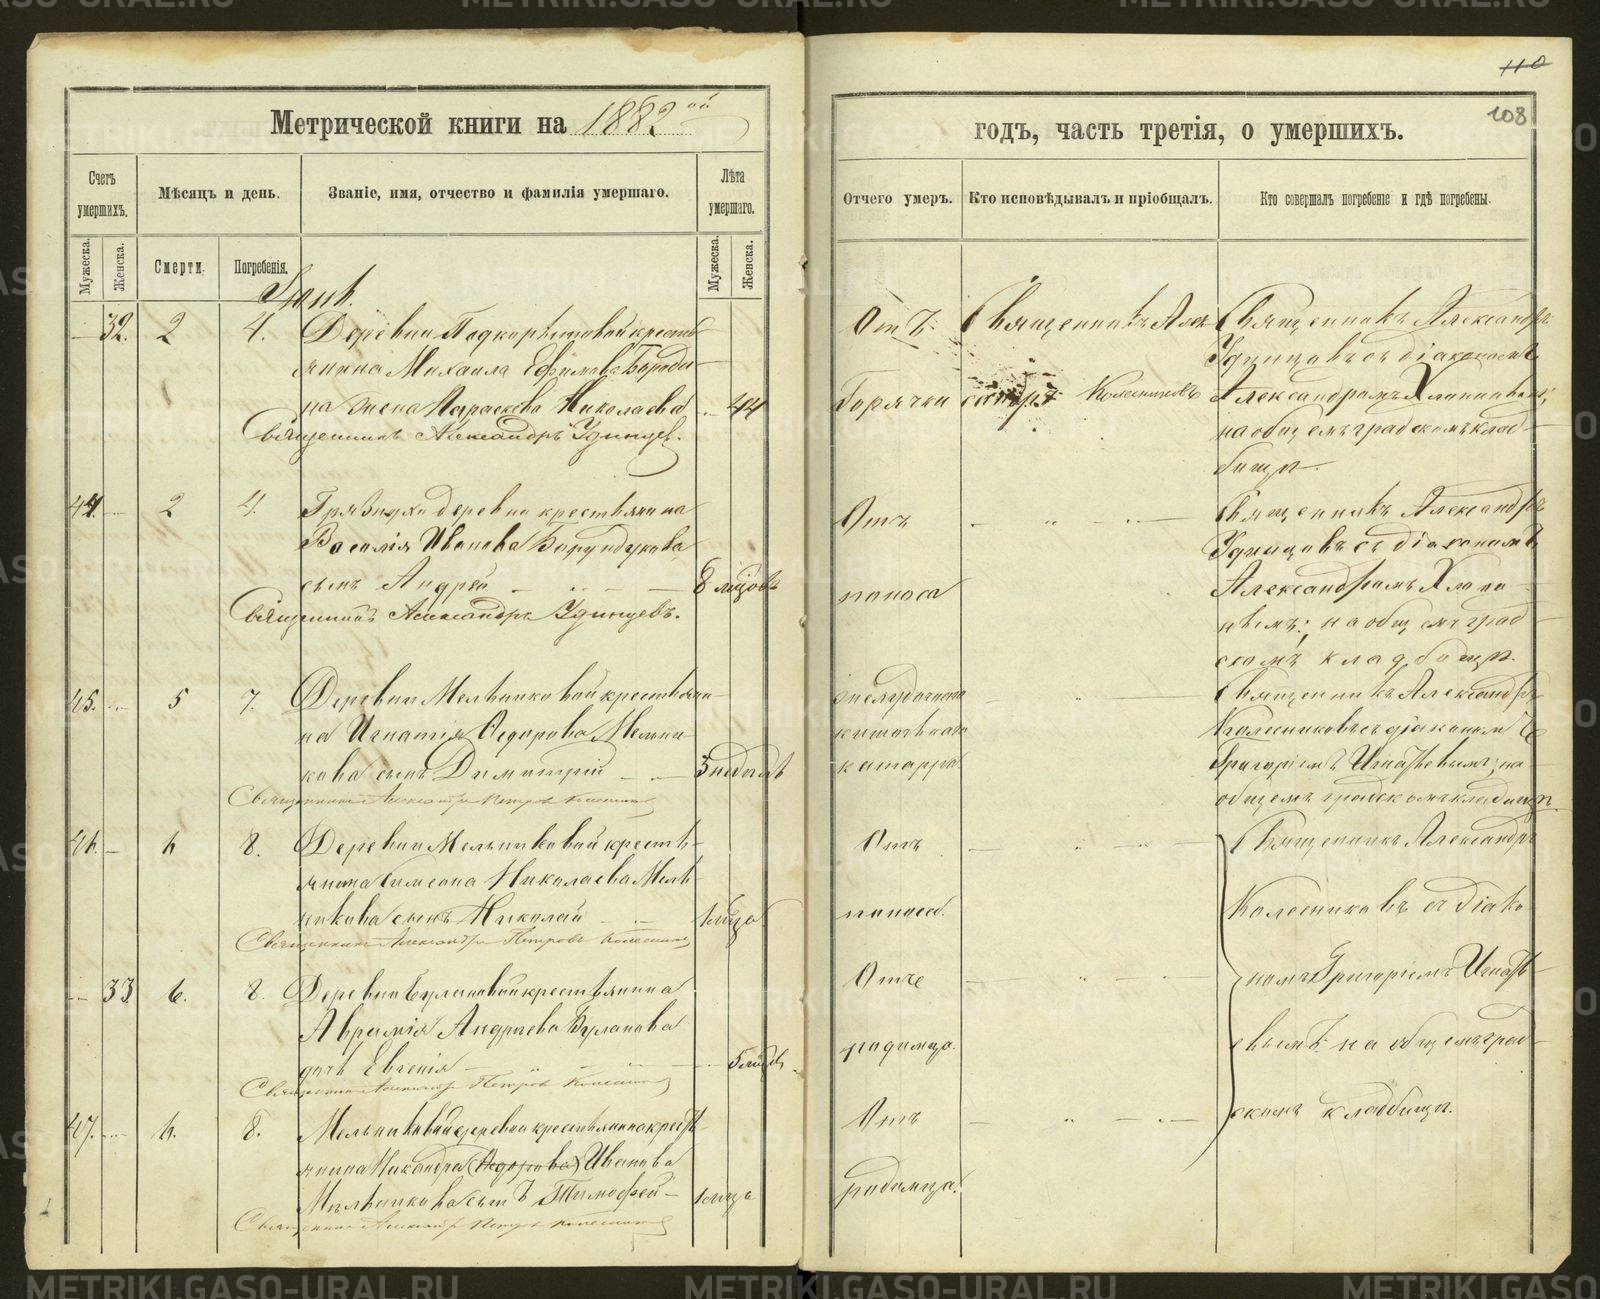 METRIKI.GASO-URAL.RU
110
108
Метрической книги на 1882ой
годъ, часть третія, о умершихъ.
Счетъ умершихъ.
Мѣсяцъ и день.
Званіе, имя, отчество и фамилія умершаго.
Лѣта умершаго.
Отчего умеръ.
Кто исповѣдывалъ и пріобщалъ.
Кто совершалъ погребеніе и гдѣ погребены.
Мужеска.
Женска.
Смерти.
Погребенія.
Мужеска.
Женска.
32. 2 4.
янина Михаила Ефимова Бороди-
на жена Параскева Николаева
44
Священникъ Александръ Удинцев.
Отъ
Горячки
Священникъ Алек
Колесниковъ
Священникъ Александръ
Удинцовъ съ діакономъ
Александромъ Хлопиновымъ;
на общемъ градскомъ клад-
бищѣ.
44. 2 4.
Грязнухи деревни крестьянина
Василія Иванова Бурундукова
сынъ Андрей
8 мѣсцовъ
Священникъ Александръ Удинцевъ.
Отъ
поноса
Священникъ Александръ
Удинцовъ съ діакономъ
Александромъ Хлопи-
новымъ; на общемъ град-
скомъ кладбищѣ.
45. 5 7.
Деревни Мельниковой крестьяни-
на Игнатія Ѳедорова Мельни-
кова сынъ Димитрій
5 недѣль
Священникъ Александръ Петровъ Колесников
желудочнаго
кишечнаго
катарра.
Священникъ Александръ
Колесниковъ съ діакономъ
Григоріемъ Игнатьевымъ; на
общемъ градскомъ кладбищѣ.
46. 6 8.
Деревни Мельниковой кресть-
янина Симеона Николаева Мель-
никова сынъ Николай
1 мѣсца
Священникъ Александръ Петровъ Колесников
Отъ
поноса.
Священникъ Александръ
Колесниковъ съ діако-
номъ Григоріемъ Игнать-
евымъ на общемъ град-
скомъ кладбищѣ.
33. 6. 8.
Деревни Булановой крестьянина
Аврамія Андреева Буланова
дочь Евгенія
5 мѣсцовъ
Священникъ Александръ Петровъ Колесников
Отъ
родимца.
47. 6. 8.
Мельниковой деревни крестьянина крест-
янина Никандра (Ѳедорова) Иванова
Мельникова сынъ Тимофей
1 мѣсца
Священникъ Александръ Петровъ Колесников
Отъ
родимца.
METRIKI.GASO-URAL.RU